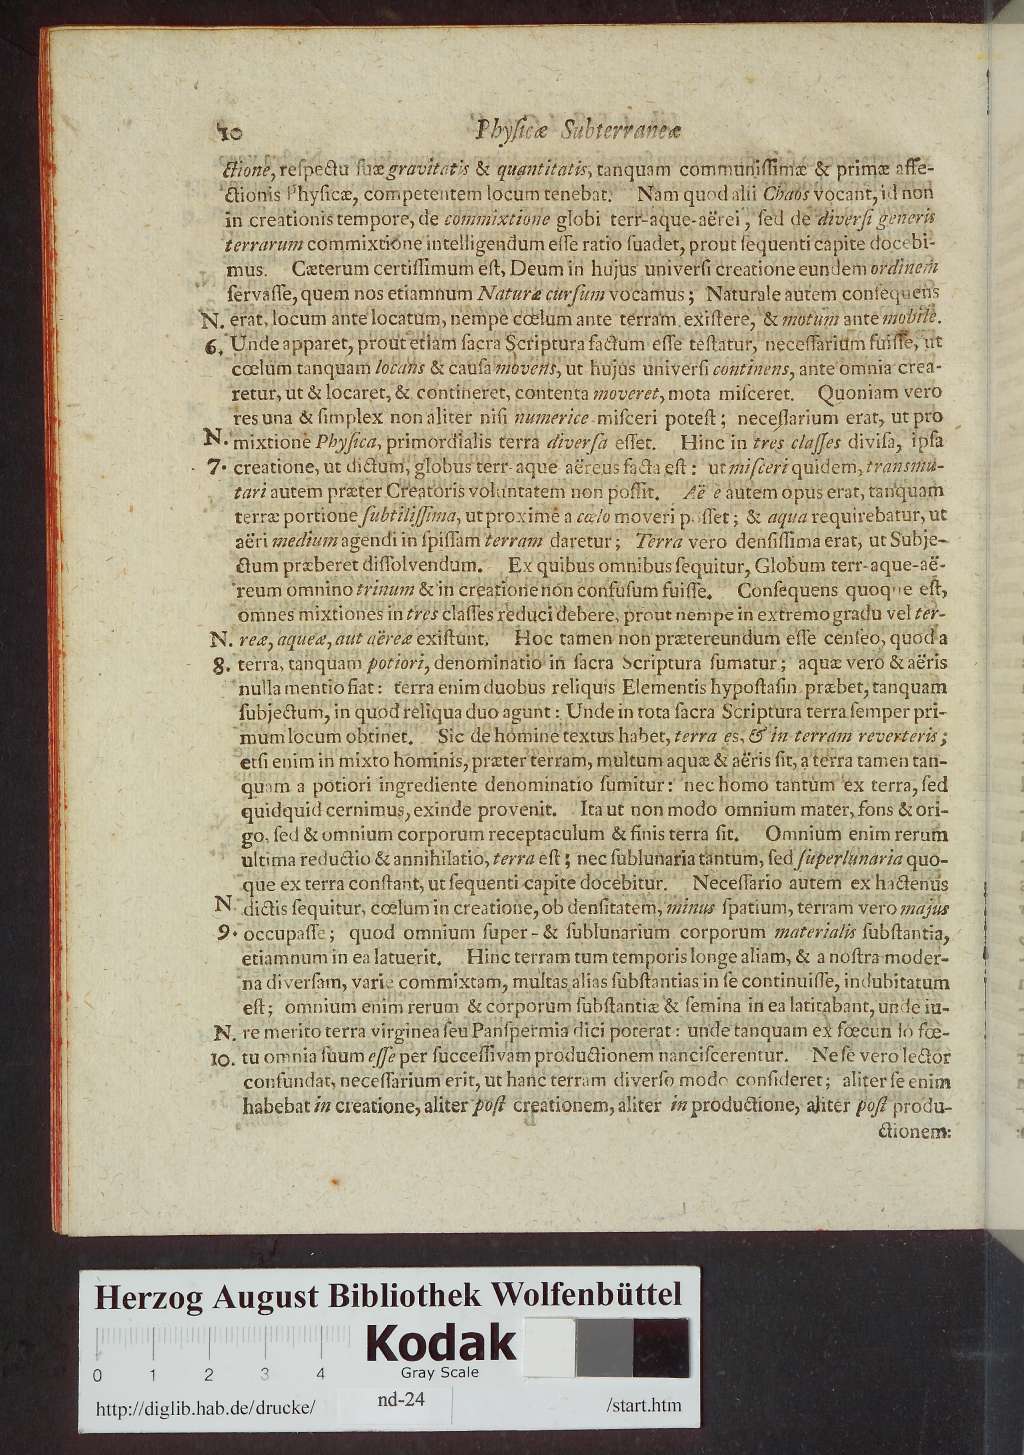 10 Phyſicæ Subterraneæ
ctione, reſpectu ſuæ gravitatis & quantitatis, tanquam communiſſimæ & primæ affe-
ctionis Phyſicæ, competentem locum tenebat. Nam quod alii Chaos vocant, id non
in creationis tempore, de commixtione globi terr-aque-aërei, ſed de diverſi generis
terrarum commixtione intelligendum eſſe ratio ſuadet, prout ſequenti capite docebi-
mus. Cæterum certiſſimum eſt, Deum in hujus univerſi creatione eundem ordinem
ſervaſſe, quem nos etiamnum Naturæ curſum vocamus; Naturale autem conſequens
N. erat, locum ante locatum, nempe cœlum ante terram exiſtere, & motum ante mobile.
6. Unde apparet, prout etiam ſacra Scriptura factum eſſe teſtatur, neceſſarium fuiſſe, ut
cœlum tanquam locans & cauſa movens, ut hujus univerſi continens, ante omnia crea-
retur, ut & locaret, & contineret, contenta moveret, mota miſceret. Quoniam vero
res una & ſimplex non aliter niſi numerice miſceri poteſt; neceſſarium erat, ut pro
N. mixtione Phyſica, primordialis terra diverſa eſſet. Hinc in tres claſſes diviſa, ipſa
7. creatione, ut dictum, globus terr-aque aëreus facta eſt: ut miſceri quidem, transmu-
tari autem præter Creatoris voluntatem non poſſit. Aëre autem opus erat, tanquam
terræ portione ſubtiliſſima, ut proxime a cœlo moveri poſſet; & aqua requirebatur, ut
aëri medium agendi in ſpiſſam terram daretur; Terra vero denſiſſima erat, ut Subje-
ctum præberet diſſolvendum. Ex quibus omnibus ſequitur, Globum terr-aque-aë-
reum omnino trinum & in creatione non confuſum fuiſſe. Conſequens quoque eſt,
omnes mixtiones in tres claſſes reduci debere, prout nempe in extremo gradu vel ter-
N. reæ, aqueæ, aut aëreæ exiſtunt. Hoc tamen non prætereundum eſſe cenſeo, quod a
8. terra, tanquam potiori, denominatio in ſacra Scriptura ſumatur; aquæ vero & aëris
nulla mentio fiat: terra enim duobus reliquis Elementis hypoſtaſin præbet, tanquam
ſubjectum, in quod reliqua duo agunt: Unde in tota ſacra Scriptura terra ſemper pri-
mum locum obtinet. Sic de homine textus habet, terra es, & in terram reverteris;
etſi enim in mixto hominis, præter terram, multum aquæ & aëris ſit, a terra tamen tan-
quam a potiori ingrediente denominatio ſumitur: nec homo tantum ex terra, ſed
quidquid cernimus, exinde provenit. Ita ut non modo omnium mater, fons & ori-
go, ſed & omnium corporum receptaculum & finis terra ſit. Omnium enim rerum
ultima reductio & annihilatio, terra eſt; nec ſublunaria tantum, ſed ſuperlunaria quo-
que ex terra conſtant, ut ſequenti capite docebitur. Neceſſario autem ex hactenus
N. dictis ſequitur, cœlum in creatione, ob denſitatem, minus ſpatium, terram vero majus
9. occupaſſe; quod omnium ſuper- & ſublunarium corporum materialis ſubſtantia,
etiamnum in ea latuerit. Hinc terram tum temporis longe aliam, & a noſtra moder-
na diverſam, varie commixtam, multas alias ſubſtantias in ſe continuiſſe, indubitatum
eſt; omnium enim rerum & corporum ſubſtantiæ & ſemina in ea latitabant, unde iu-
N. re merito terra virginea ſeu Panſpermia dici poterat: unde tanquam ex fœcundo fœ-
10. tu omnia ſuum eſſe per ſucceſſivam productionem nanciſcerentur. Ne ſe vero lector
confundat, neceſſarium erit, ut hanc terram diverſo modo conſideret; aliter ſe enim
habebat in creatione, aliter poſt creationem, aliter in productione, aliter poſt produ-
ctionem:
Herzog August Bibliothek Wolfenbüttel
Kodak
Gray Scale
0 1 2 3 4
http://diglib.hab.de/drucke/ nd-24 /start.htm